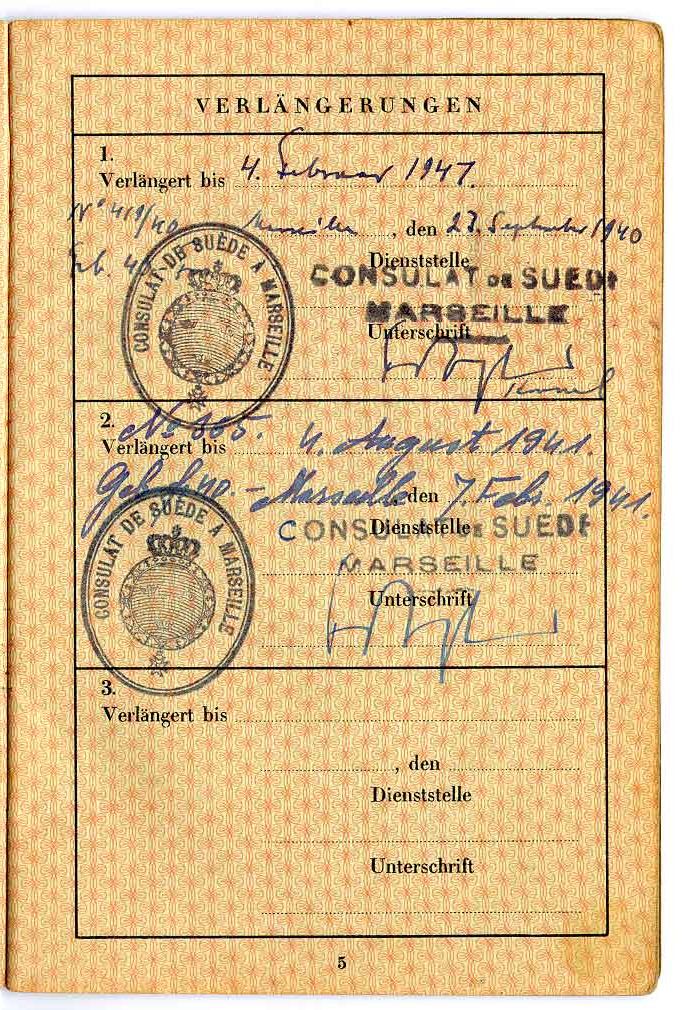 VERLÄNGERUNGEN
1.
Verlängert bis 4. Februar 1941.
Nº 419/40
, den 23. September 1940
Dienststelle
CONSULAT DE SUÈDE À MARSEILLE
CONSULAT DE SUEDE
MARSEILLE
Unterschrift
2. No
Verlängert bis 4. August 1941.
Geb. 4.40. - Marseille, den 7. Febr. 1941.
CONSULAT DE SUÈDE À MARSEILLE
Dienststelle
CONSULAT DE SUEDE
MARSEILLE
Unterschrift
3.
Verlängert bis
, den
Dienststelle
Unterschrift
5